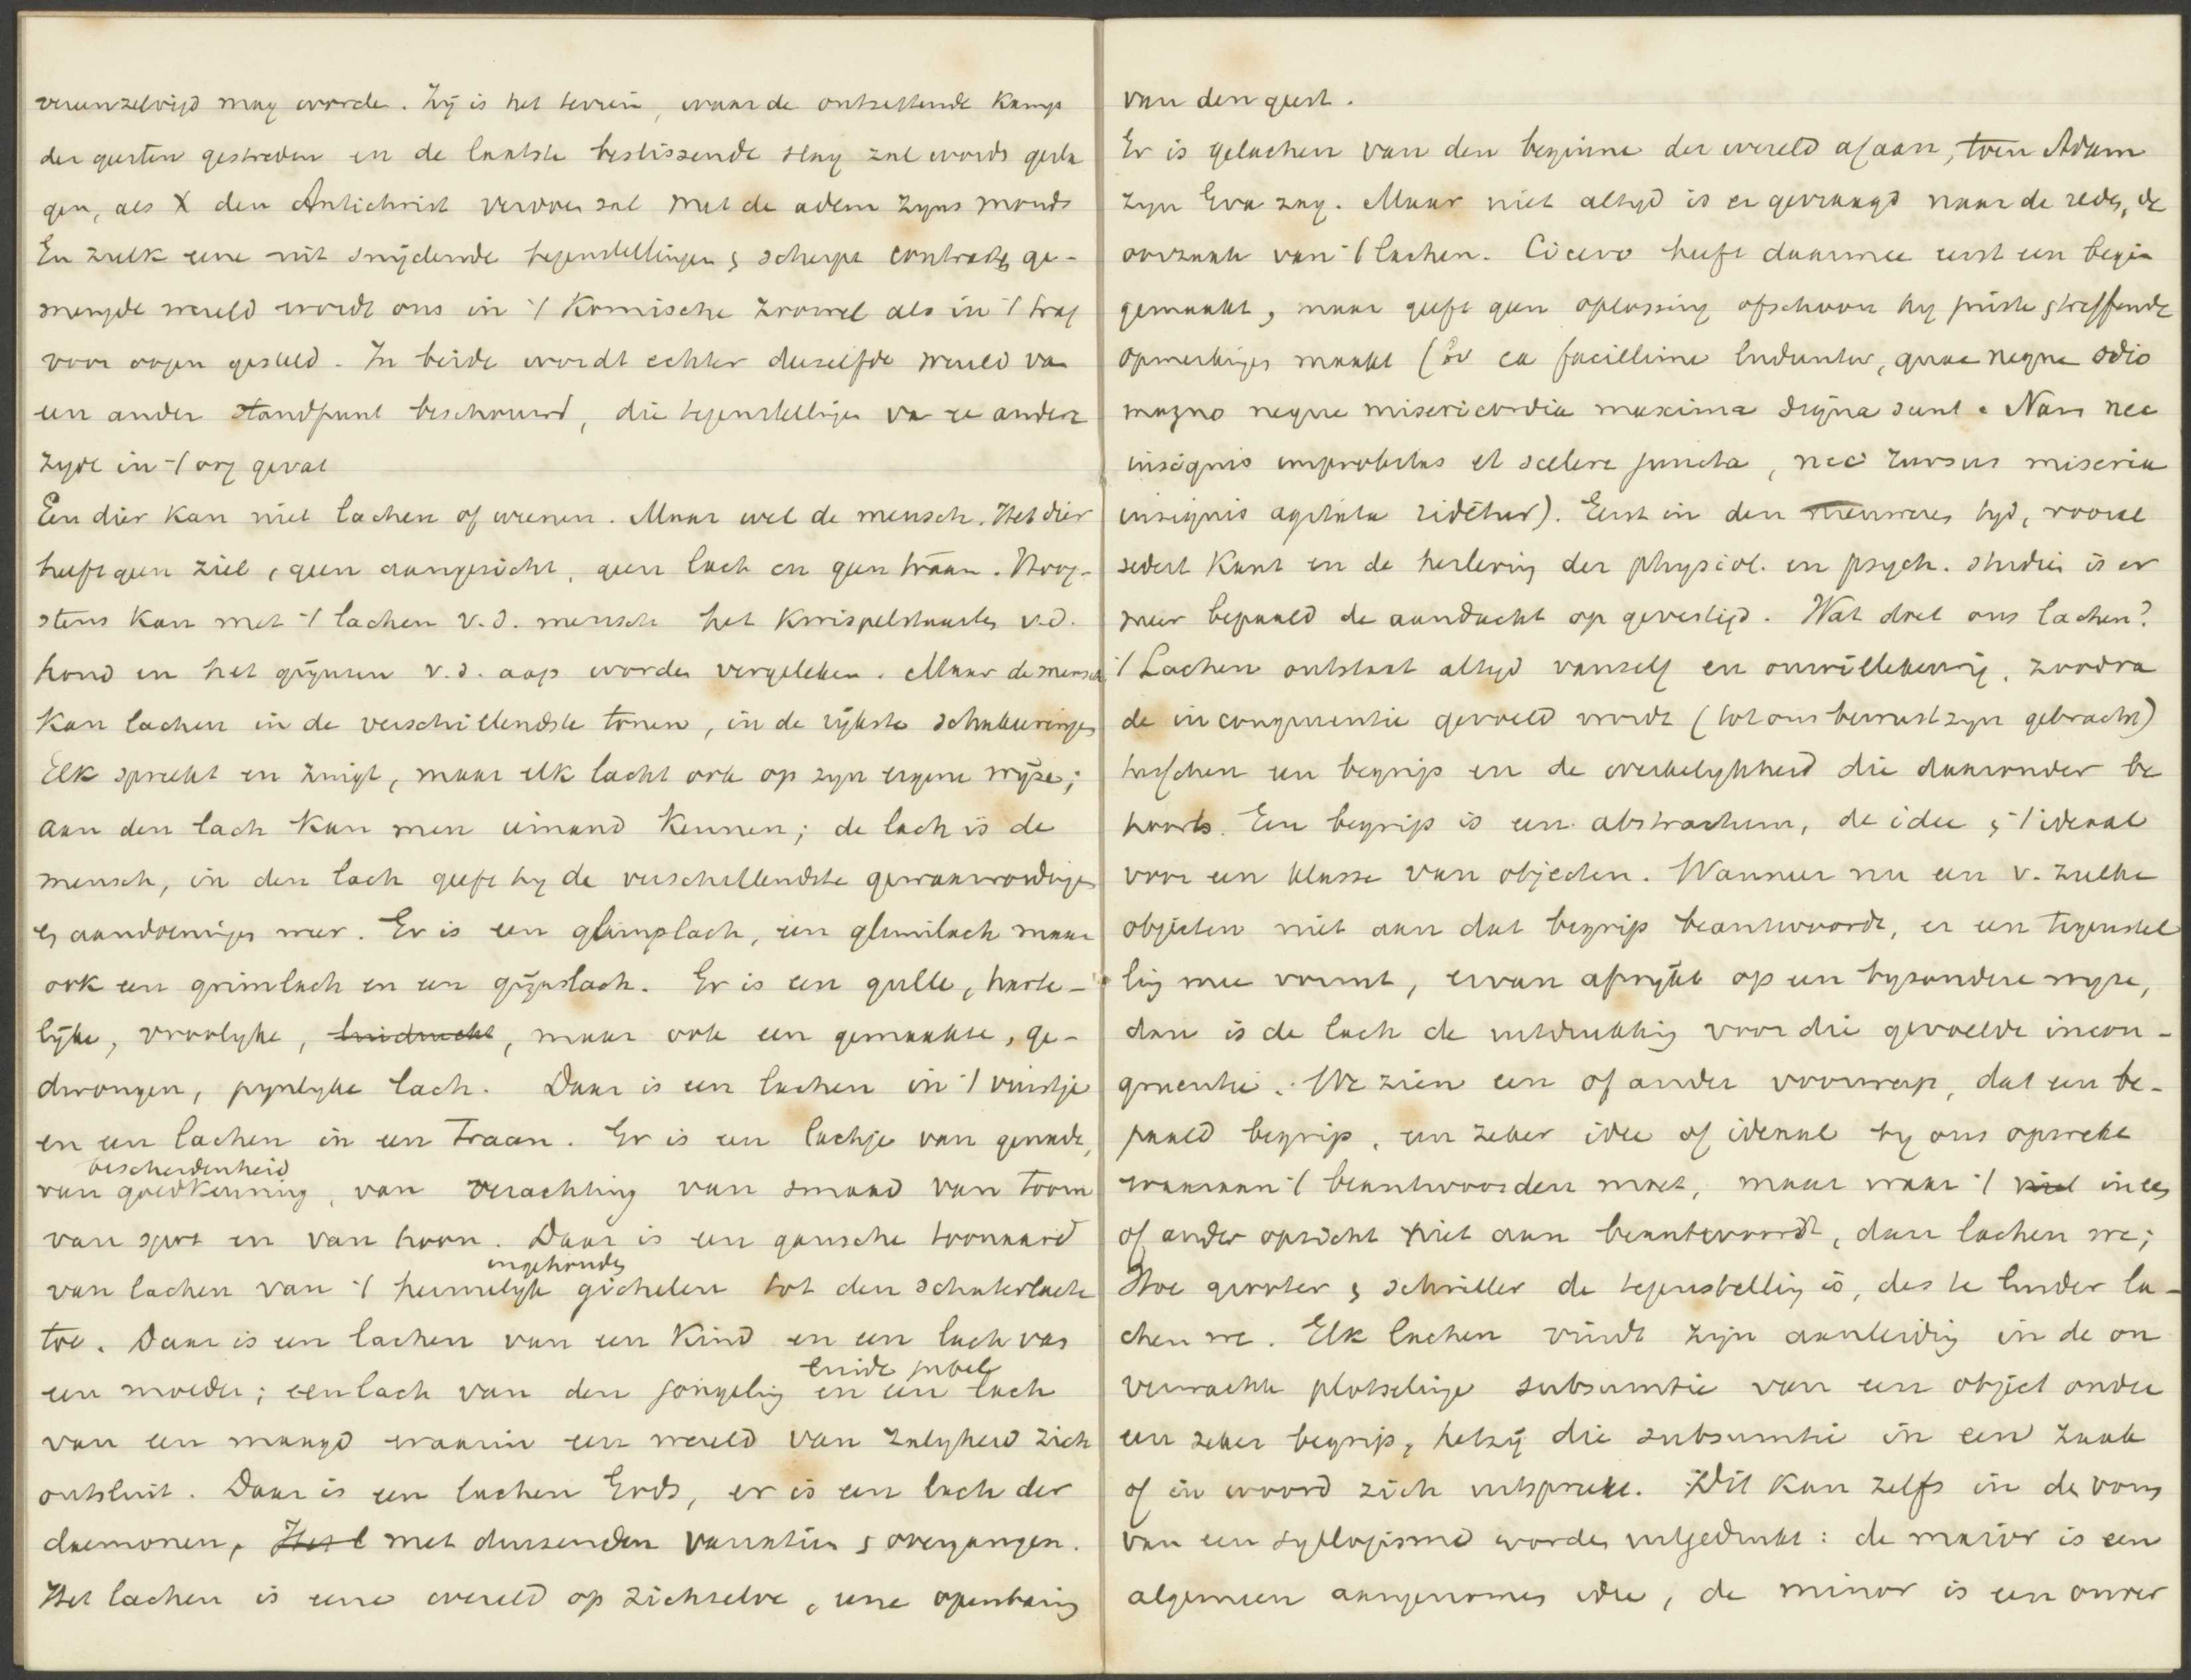 vereenzelvigd mag worde. Zij is het terrein, waar de ontzettende kamp
der geesten gestreden en de laatste beslissende slag zal words gesla
gen, als X den Antichrist verdoen zal met de adem zijns monds
En zulk eene uit snijdende tegenstellingen & scherpe contrasten ge-
mengde wereld wordt ons in 't Komische zoowel als in 't trag
voor oogen gesteld. In beide wordt echter dezelfde wereld van
een ander standpunt beschouwd, die tegenstellingen van de andere
zyde in 't oog gevat
Een dier kan niet lachen of weenen. Maar wel de mensch. Het dier
heeft geen ziel, geen aangezicht, geen lach en geen traan. Hoog-
stens kan met 't lachen v.d. mensch het kwispelstaarten v.d.
hond en het grijnzen v.d. aap worden vergeleken. Maar de mensch
kan lachen in de verschillendste tonen, in de rijkste schakeeringen
Elk spreekt en zwijgt, maar elk lacht ook op zyn eigene wijze;
aan den lach kan men iemand kennen; de lach is de
mensch, in den lach geeft hy de verschillendste gewaarwordingen
en aandoeningen weer. Er is een glimplach, een glimlach maar
ook een grimlach en een grijnslach. Er is een gulle, harte-
lijke, vroolyke, luidruchte, maar ook een gemaakte, ge-
dwongen, pynlyke lach. Daar is een lachen in 't vuistje
en een lachen in een traan. Er is een lachje van genade,
bescheidenheid
van goedkeuring, van verachting van smaad van toorn
van spot en van hoon. Daar is een gansche toonaard
ingehouden
van lachen van 't heimelyk gichelen tot den schaterlach
toe. Daar is een lachen van een kind en een lach van
luide jubel
een moeder; een lach van den jongeling en een lach
van een maagd waarin een wereld van zalyheid zich
ontsluit. Daar is een lachen Gods, er is een lach der
daemonen, Het l met duizenden variatien & overgangen.
Het lachen is eene wereld op zichzelve, eene openbaring
van den geest.
Er is gelachen van den beginne der wereld af aan, toen Adam
zyn Eva zag. Maar niet altyd is er gevraagd naar de reden, de
oorzaak van 't lachen. Cicero heeft daarmee eerst een begin
gemaakt, maar geeft geen oplossing ofschoon hy juiste & treffende
opmerkingen maakt ( ea facillime luduntur, quae neque odio
magno neque misericordia maxima digna sunt. Nam nec
insignis improbitas et scelere juncta, nec rursus miseria
insignis agitata ridētur). Eerst in den nieuweren tyd, vooral
sedert Kant en de herleving der physiol. en psych. studien is er
meer bepaald de aandacht op gevestigd. Wat doet ons lachen?
't Lachen ontstaat altyd vanself en onwillekeurig, zoodra
de incongruentie gevoeld wordt (tot ons bewustzyn gebracht)
tusschen een begrip en de werkelykheid die daaronder be
hoorts. Een begrip is een abstractum, de idee & 't ideaal
voor een klasse van objecten. Wanneer nu een v. zulke
objecten niet aan dat begrip beantwoordt, er een tegenstel
ling mee vormt, ervan afwijkt op een byzondere wyze,
dan is de lach de uitdrukking voor die gevoelde incon-
gruentie. We zien een of ander voorwerp, dat een be-
paald begrip, een zeker idee of ideaal by ons opwekt
waaraan 't beantwoorden moet, maar waar 't niet in een
of ander opzicht niet aan beantwoordt, dan lachen we;
Hoe grooter & schriller de tegenstelling is, des te luider la-
chen we. Elk lachen vindt zijn aanleiding in de on
verwachte plotselinge subsumtie van een object onder
een zeker begrip, hetzij die subsumtie in een zaak
of in woord zich uitspreke. Dit kan zelfs in de vorm
van een syllogisme worden uitgedrukt: de maior is een
algemeen aangenomen idee, de minor is een onver